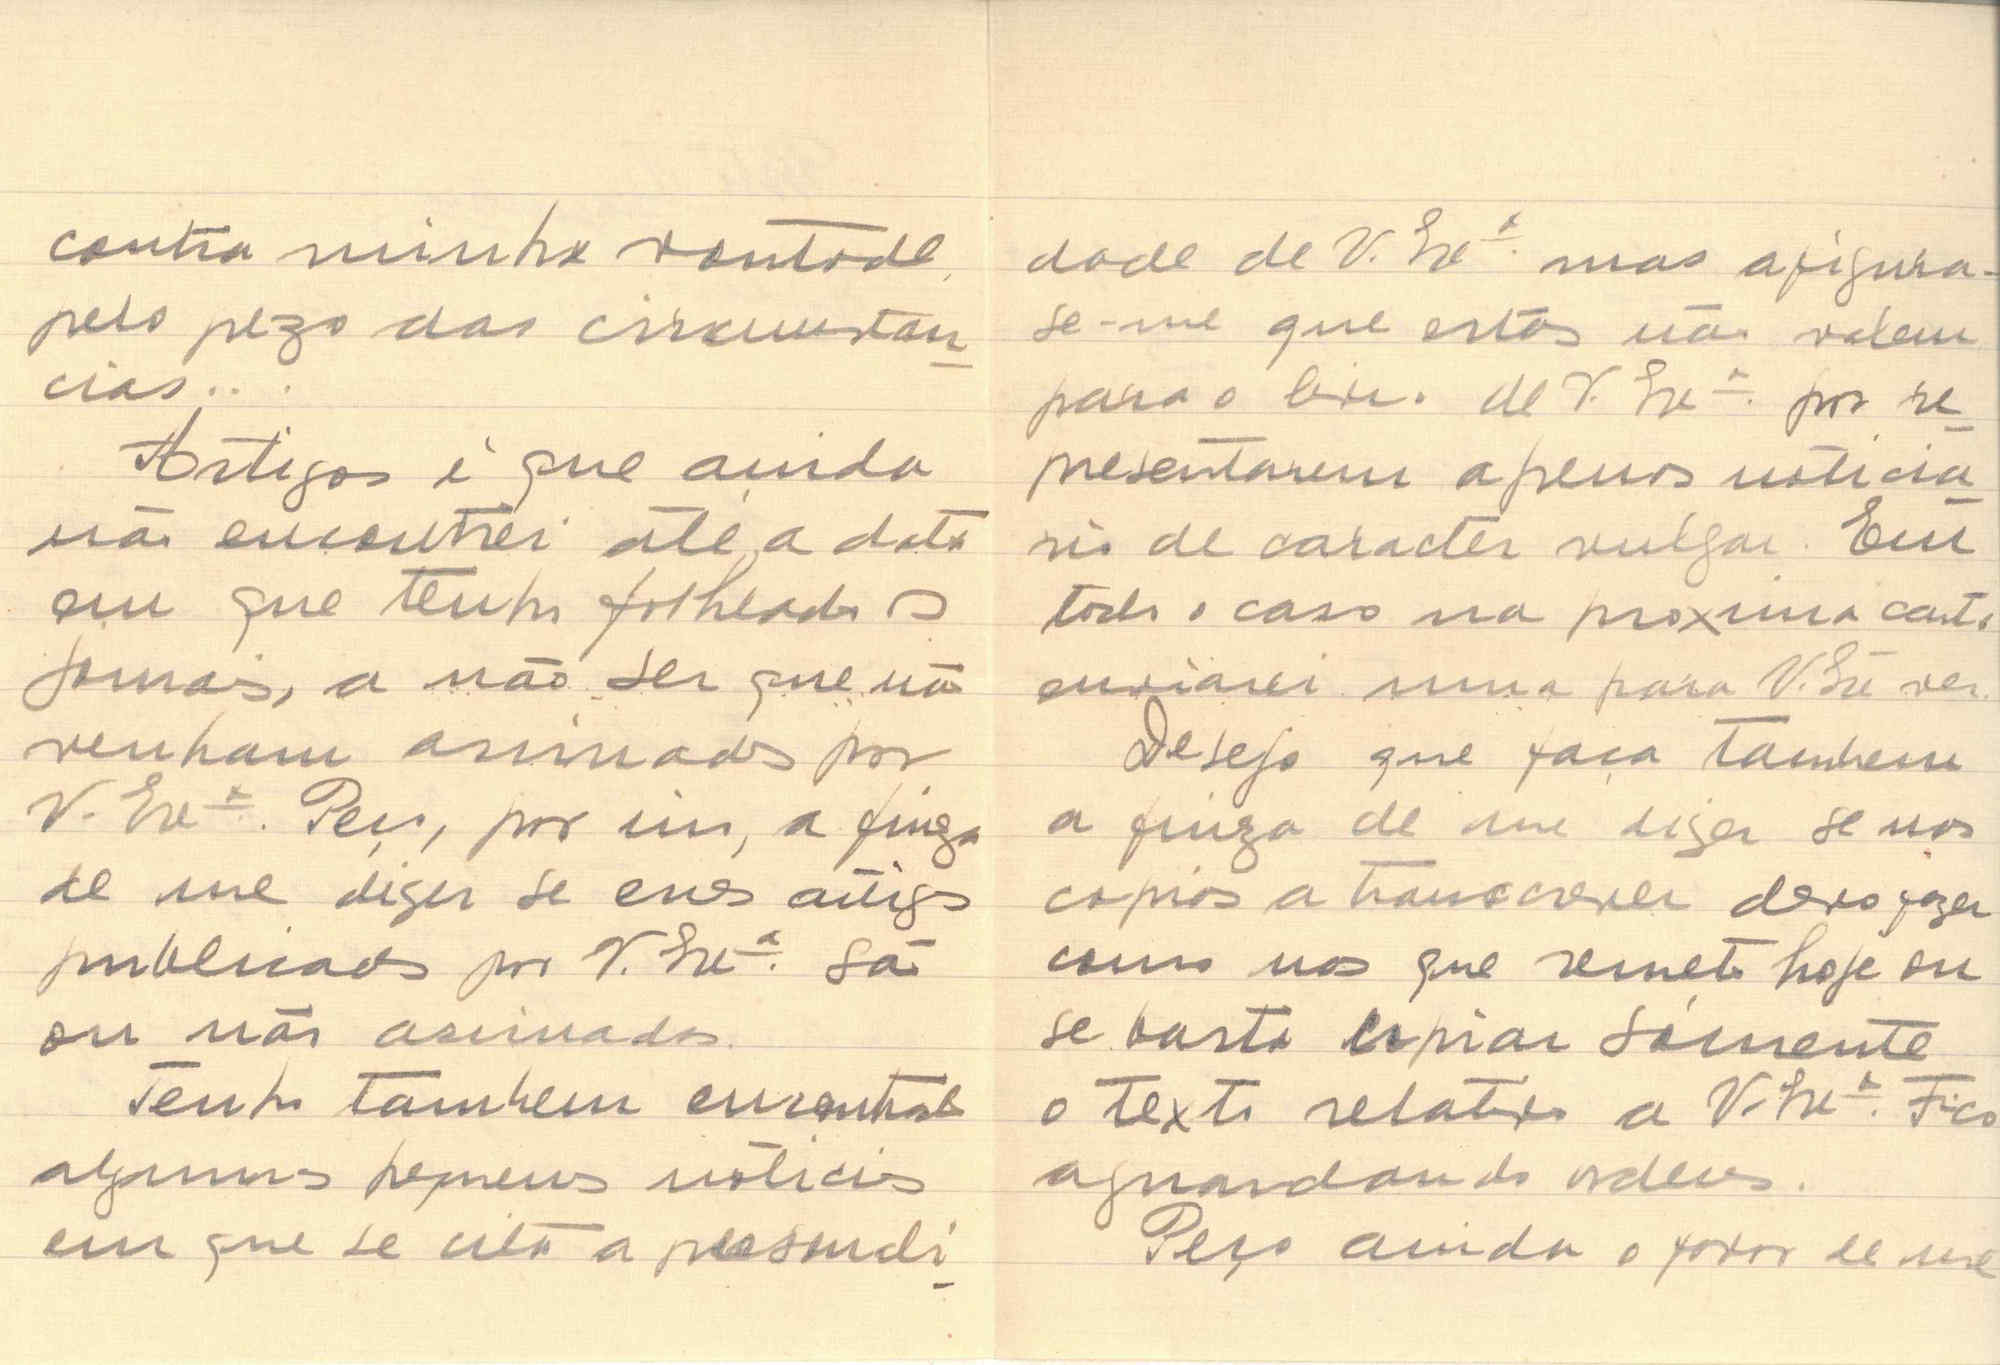 contra minha vontade,
pelo pezo das circunstan-
cias...
Artigos é que ainda
não encontrei até a data
em que tenho folheado os
jornais, a não ser que não
venham assinados por
V. Exª. Peço, por isso, a fineza
de me dizer se esses artigos
publicados por V. Exª. são
ou não assinados.
Tenho tambem encontrado
algumas pequenas noticias
em que se cita a
dade de V. Exª. mas afigura-
se-me que estas não valem
para o livro de V. Exª. por re-
presentarem apenas noticia-
rio de caracter vulgar. Em
todo o caso na proxima carta
enviarei uma para V. Exª ver.
Desejo que faça tambem
a fineza de me dizer se nas
copias a transcrever devo fazer
como nos que remeto hoje ou
se basta copiar sómente
o texto relativo a V. Exª. Fico
aguardando ordens.
Peço ainda o favor de me